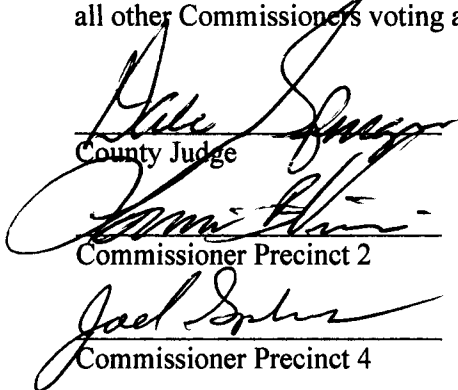 all other Commissioners voting a
Dale
County Judge
Commissioner Precinct 2
Joel
Commissioner Precinct 4